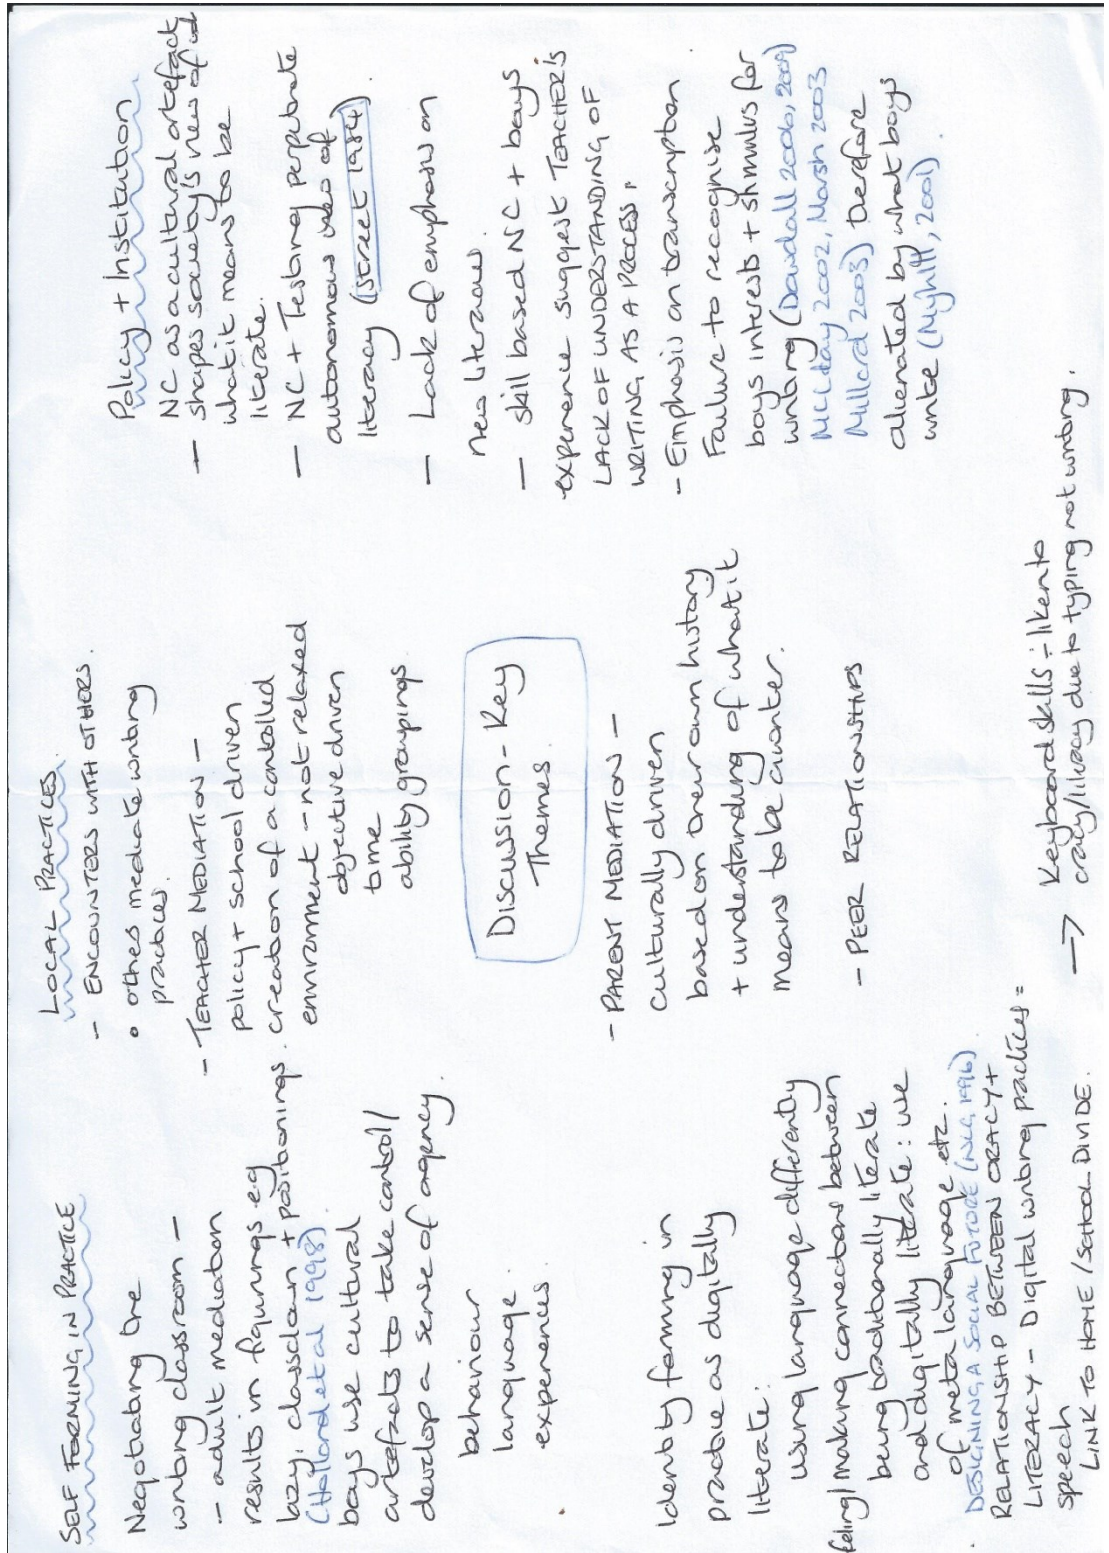 SELF FORMING IN PRACTICE
Negotiating the
writing classroom –
– adult mediation
results in figurings e.g
lazy, class clown + positionings.
(Holland et al 1998)
boys use cultural
artefacts to take control/
develop a sense of agency
behaviour
language
experiences.
Identity forming in
practice as digitally
literate:
using language differently
feeling/making connections between
being traditionally literate
and digitally literate: use
of meta language etc.
DESIGNING A SOCIAL FUTURE (NLG, 1996)
RELATIONSHIP BETWEEN ORACY +
LITERACY – Digital writing practices =
speech
LINK TO HOME/SCHOOL DIVIDE.
LOCAL PRACTICES
– ENCOUNTERS WITH OTHERS.
• others mediate writing
practices
– TEACHER MEDIATION –
policy + school driven
creation of a controlled
environment – not relaxed
objective driven
time
ability groupings
Discussion – Key
Themes
– PARENT MEDIATION –
culturally driven
based on their own history
+ understanding of what it
means to be a writer.
– PEER RELATIONSHIPS
→ Keyboard skills – liken to
oracy/literacy due to typing not writing.
Policy + Institution
NC as a cultural artefact
– shapes society's view of
what it means to be
literate.
– NC + Testing perpetuate
autonomous view of
literacy (Street 1984)
– Lack of emphasis on
new literacies
– skill based NC + boys
experience suggest TEACHER'S
LACK OF UNDERSTANDING OF
WRITING AS A PROCESS "
– Emphasis on transcription
Failure to recognise
boys interests + stimulus for
writing (Dowdall 2006, 2009
McClay 2002, Marsh 2003
Millard 2003) therefore
alienated by what boys
write (Myhill, 2001).